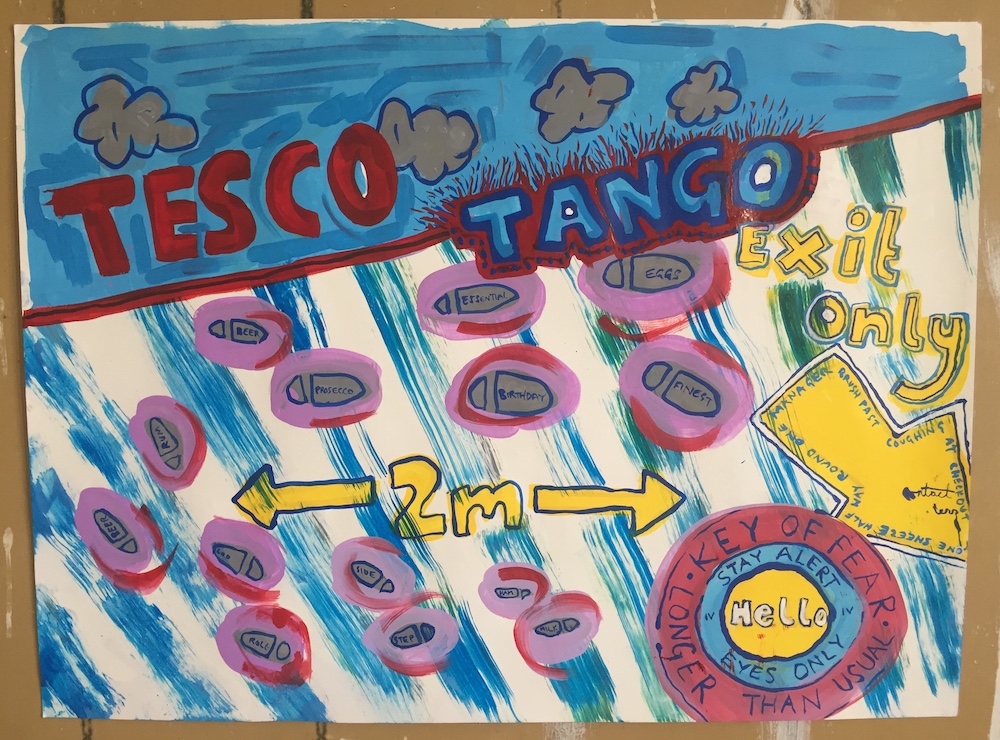 TESCO TANGO
Exit
Only
EGGS
ESSENTIAL
BEER
PROSECCO
BIRTHDAY
FINEST
RUM
2m
BRUSH PAST
COUGHING
AT CHECKOUT
ONE SNEEZE HALF
WAY
ROUND ONE
contact
lens
BEER
LOO
SIDE
ROLL
STEP
MILK
KEY OF FEAR
LONGER THAN USUAL
STAY ALERT
Hello
EYES ONLY